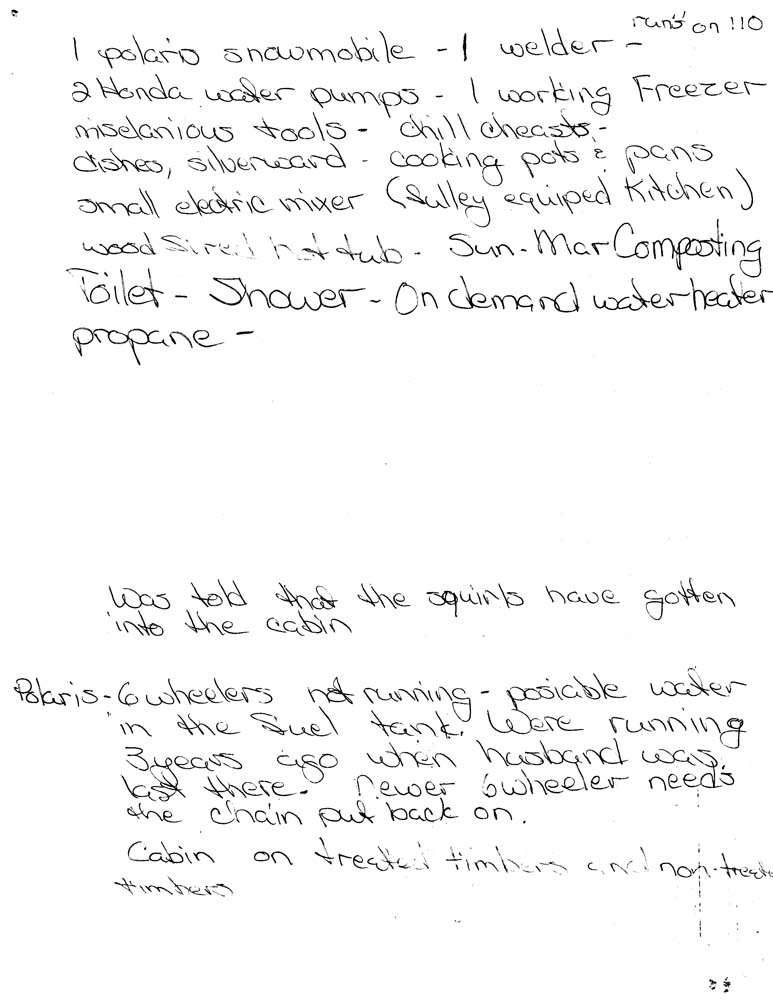 runs on 110
1 polaris snowmobile - 1 welder -
2 Honda water pumps - 1 working Freezer
miselanious tools - chill cheasts -
dishes, silverward - cooking pots & pans
small electric mixer (fulley equiped Kitchen)
wood fired hot tub - Sun-Mar Composting
Toilet - Shower - On demand water heater
propane -
Was told that the squirls have gotten
into the cabin
Polaris - 6 wheelers not running - posiable water
in the fuel tank. Were running
3 years ago when husband was
last there. newer 6 wheeler needs
the chain put back on.
Cabin on treated timbers and non-treate
timbers